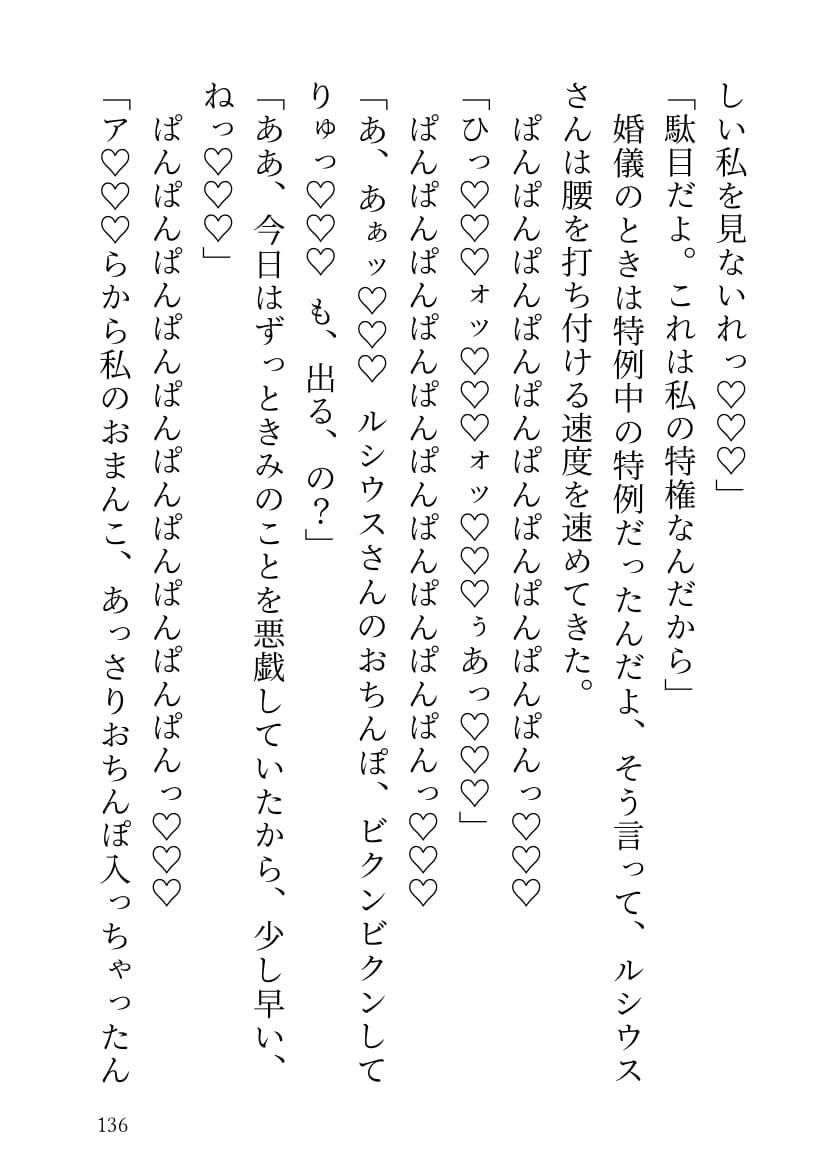 しい私を見ないれっ♡♡♡」
「駄目だよ。これは私の特権なんだから」
　婚儀のときは特例中の特例だったんだよ、そう言って、ルシウス
さんは腰を打ち付ける速度を速めてきた。
　ぱんぱんぱんぱんぱんぱんぱんぱんぱんぱんっ♡♡♡
「ひっ♡♡♡ォッ♡♡♡ォッ♡♡♡ぅあっ♡♡♡」
　ぱんぱんぱんぱんぱんぱんぱんぱんぱんぱんっ♡♡♡
「あ、あぁッ♡♡♡　ルシウスさんのおちんぽ、ビクンビクンして
りゅっ♡♡♡　も、出る、の？」
「ああ、今日はずっときみのことを悪戯していたから、少し早い、
ねっ♡♡♡」
　ぱんぱんぱんぱんぱんぱんぱんぱんぱんぱんっ♡♡♡
「ア♡♡♡らから私のおまんこ、あっさりおちんぽ入っちゃったん
136